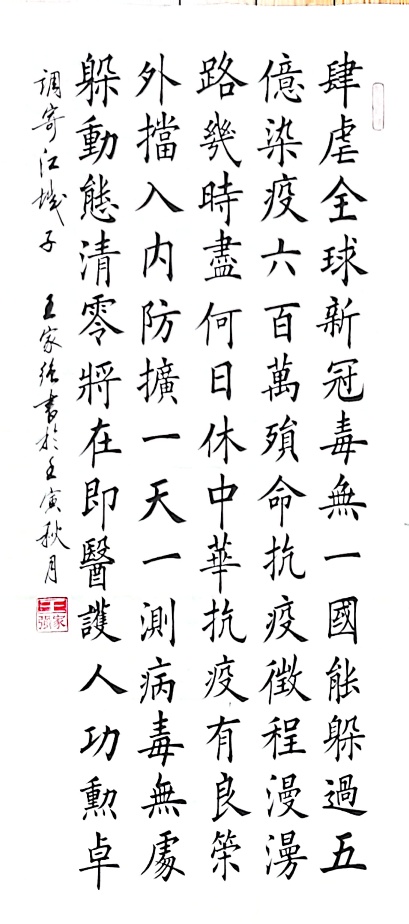 肆虐全球新冠毒無一國能躲過五
億染疫六百萬殞命抗疫徵程漫漫
路幾時盡何日休中華抗疫有良策
外擋入内防擴一天一測病毒無處
躲動態清零將在即醫護人功勲卓
調寄江城子 王家強書於壬寅秋月
王家強